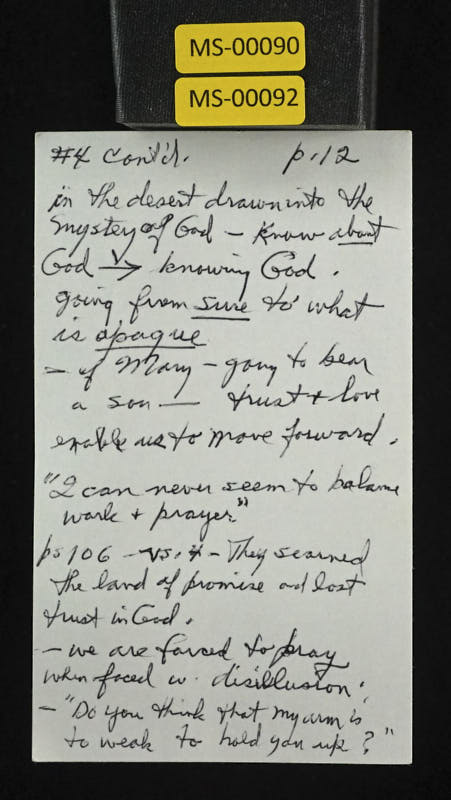 MS-00090
MS-00092
#4 cont'd. p.12
in the desert drawn into the
mystey of God – know about
God → knowing God.
going from sure to what
is opaque
– of Mary – going to bear
a son — trust + love
enable us to move forward.
"I can never seem to balance
work + prayer."
ps 106 – vs. – They scarned
the land of promise and lost
trust in God.
– we are forced to pray
when faced w. disillusion.
– "Do you think that my arm is
to weak to hold you up?"